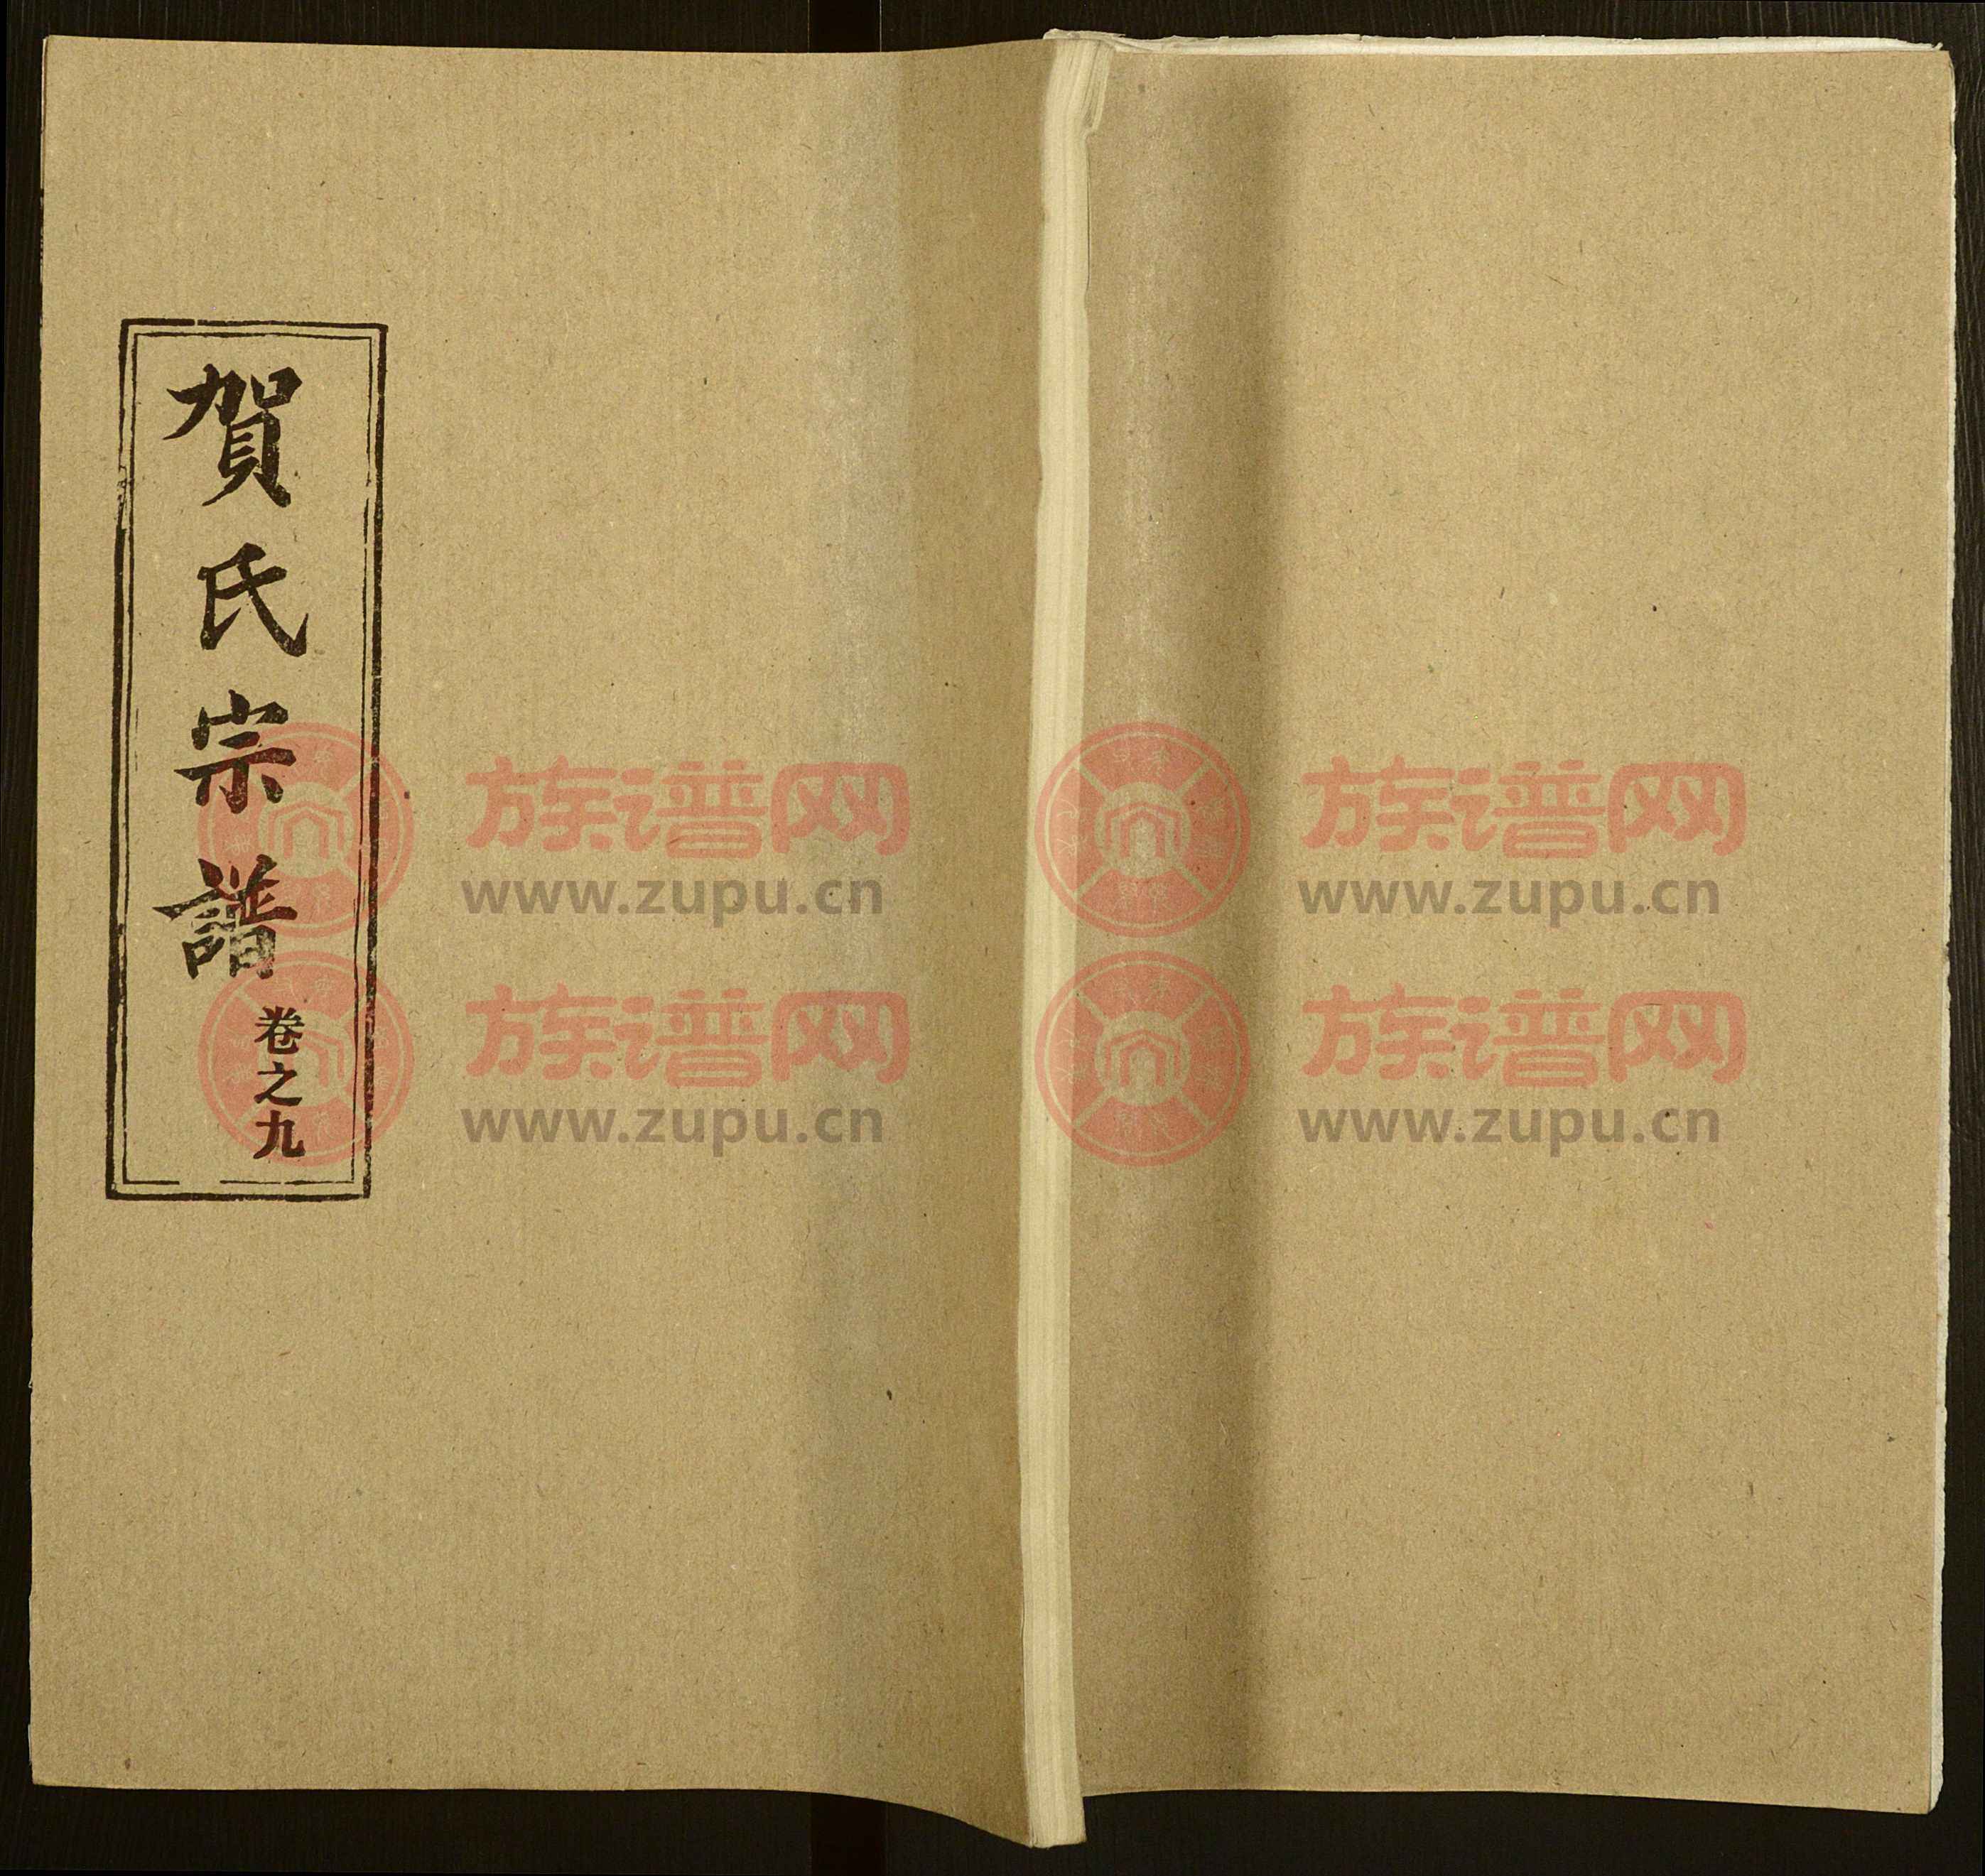 賀氏宗譜
卷之九
族谱网
www.zupu.cn
族谱网
www.zupu.cn
族谱网
www.zupu.cn
族谱网
www.zupu.cn